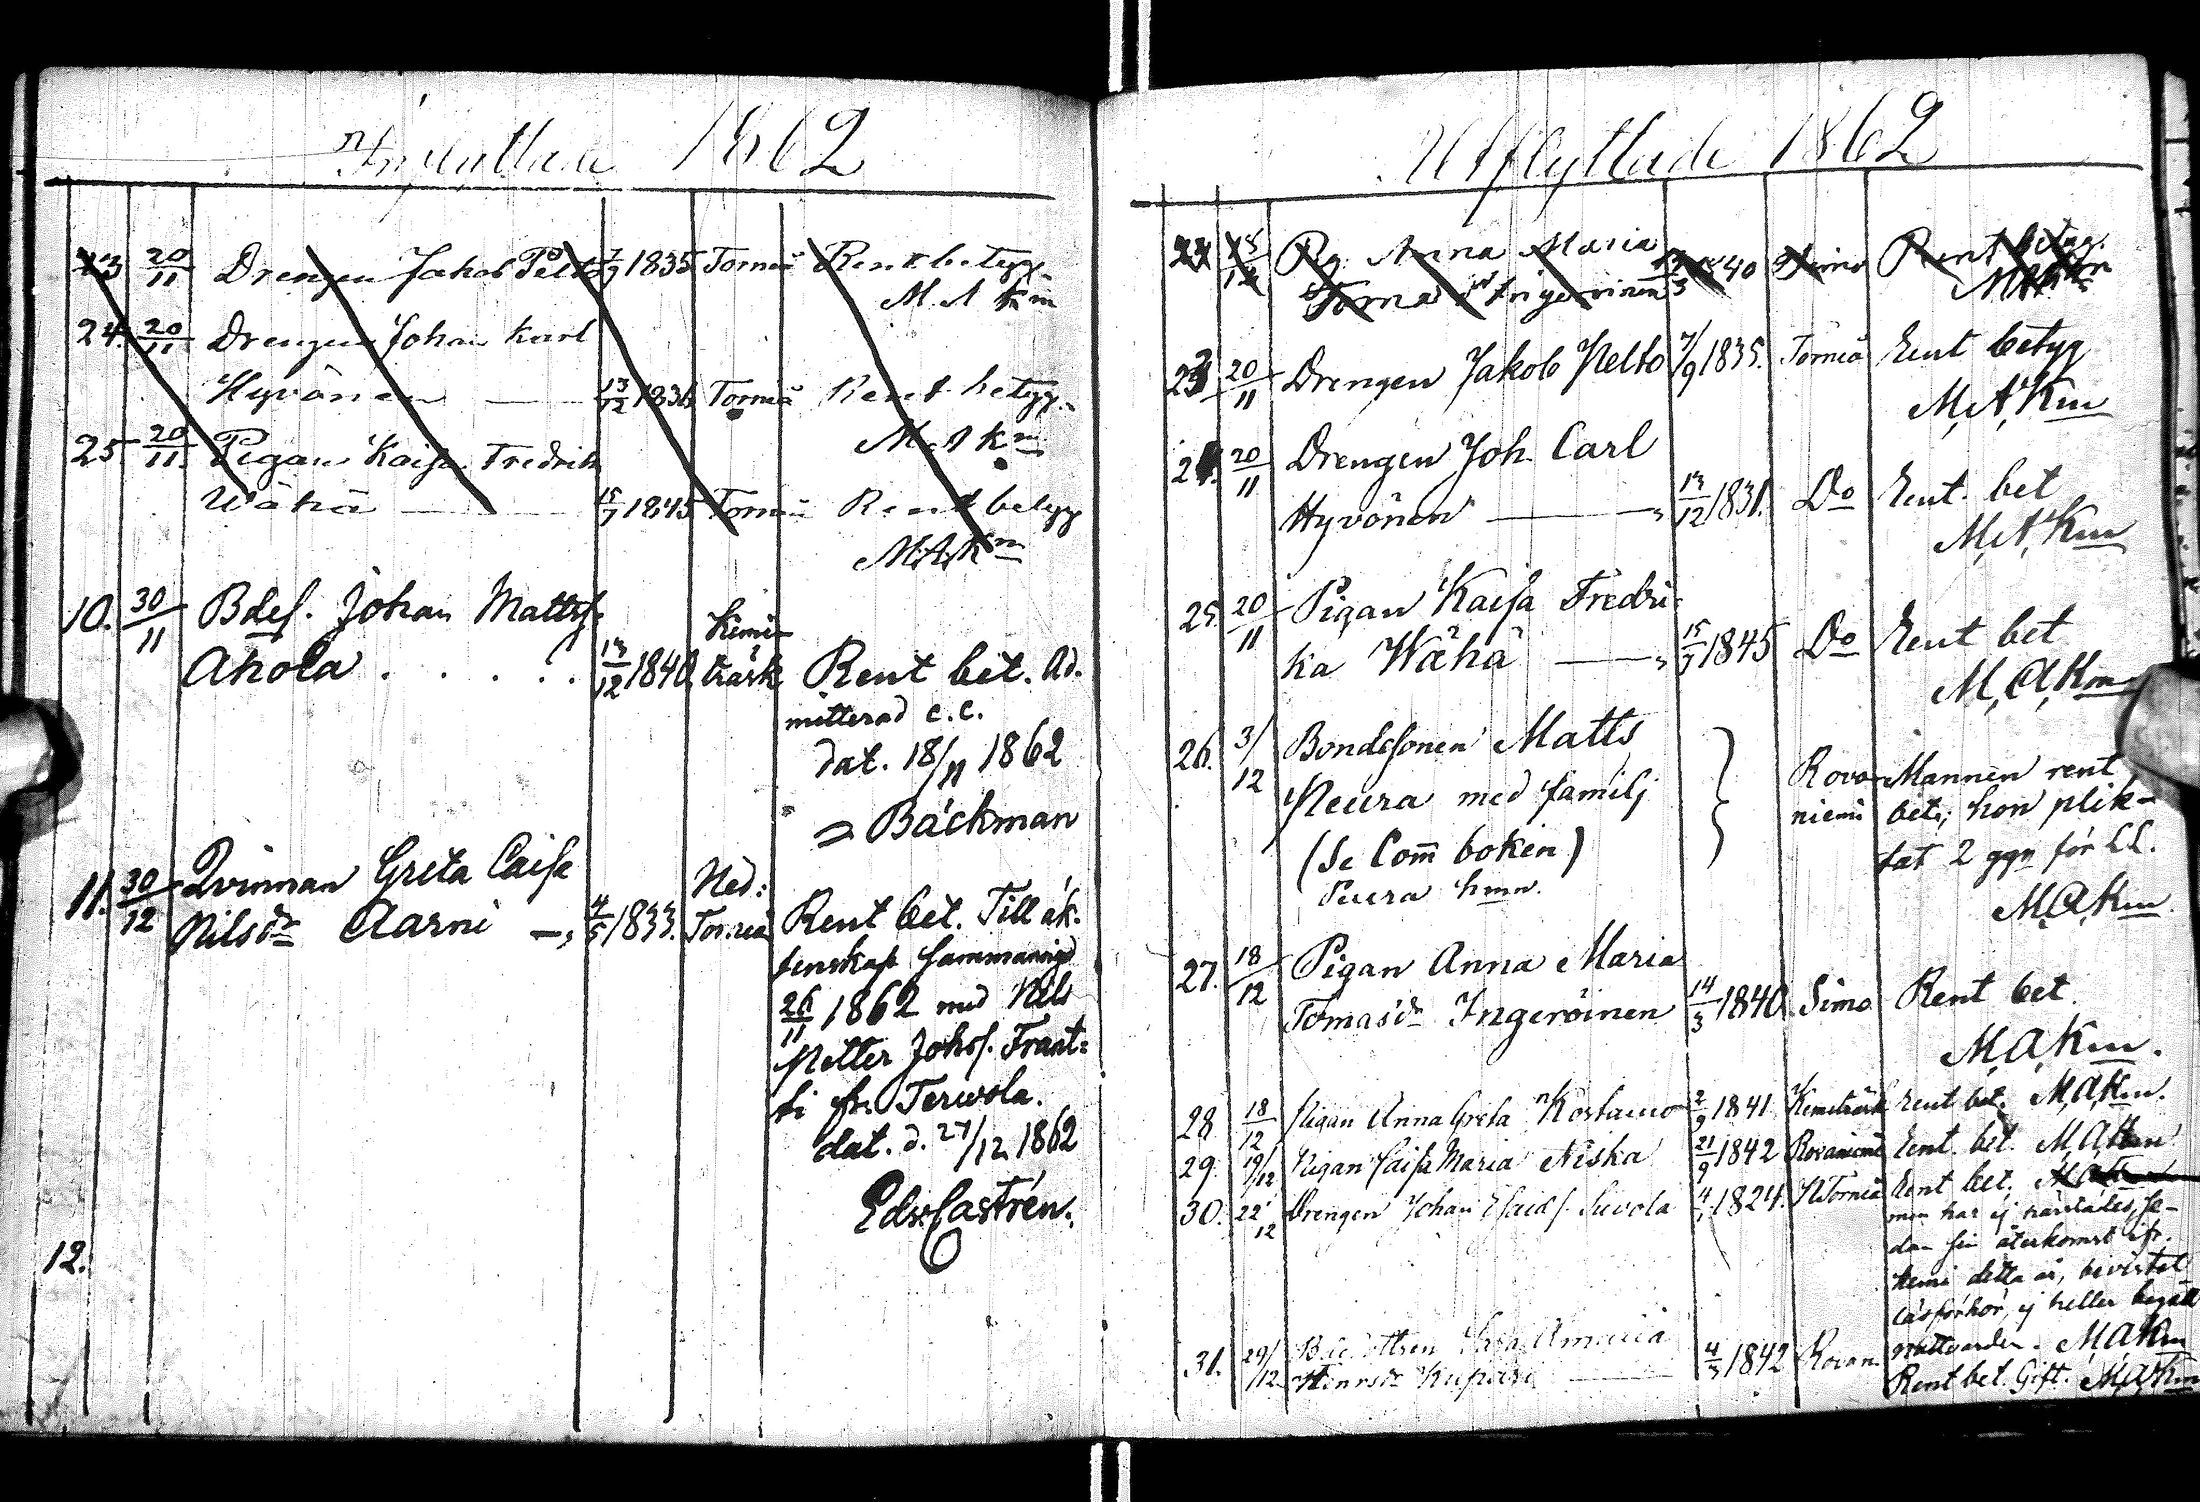 Inflyttade 1862
23 20/11 Drengen Jakob Pelto 7/9 1835 Torneå Rent betyg.
M. A km
24. 20/11 Drengen Johan Karl
Hyvönen — 13/12 1831 Torneå Rent betyg.
M. A km
25. 20/11. Pigan Kaisa Fredrik
Wähä — 15/7 1845 Torneå Rent betyg
M.A.Km
10. 30/11 Bdes. Johan Mattss.
Ahola . . . . 13/12 1840 Kemi-
träsk Rent bet. Ad-
mitterad c.c.
dat. 18/11 1862
Bäckman
11. 30/12 Qvinnan Greta Caisa
Nilsdr Aarni — 4/5 1833. Ned:
Torneå Rent bet. Till äk-
tenskap sammanvigd
26/11 1862 med Nils
Petter Johss. Frant-
ti fr. Terwola.
dat. d. 27/12 1862
Edv. Castrén.
12.
Utflyttade 1862
Pig. Anna Maria 40 Simo Rent betyg.
Ingeröinen
23 20/11 Drengen Jakob Pelto 7/9 1835. Torneå Rent betyg
M.A.Km
24. 20/11 Drengen Joh. Carl
Hyvönen — 13/12 1831. Do Rent. bet
M.A.Km
25. 20/11 Pigan Kaisa Fredri-
ka Wähä — 15/7 1845 Do Rent bet
M.A.Km
26. 3/12 Bondesonen Matts
Peura med familj
(Se Com̄ boken)
Peura hmn.
Rova-
niemi
Mannen rent
bet.; hon plik-
tat 2 ggr för LL.
M.A.Km
27. 18/12 Pigan Anna Maria
Tomasdr Ingeröinen 14/3 1840 Simo Rent bet.
M.A.Km.
28 18/12 Pigan Anna Greta Kostamo 2/9 1841 Kemiträsk Rent bet. M.A.Km.
29. 19/12 Pigan Caisa Maria Niska 21/9 1842 Rovaniemi Rent. bet. M.A.Km
30. 22/12 Drengen Johan Esaiss. Suvola 1824. NTorneå Rent bet.
men har ej se-
dan sin återkomst ifr.
Kemi detta år, bevistat
läsförhör, ej heller begått
nattvarden. M.A.Km
31. 29/12 4/3 1842 Rovan. Rent bet. Gift. M.A.Km